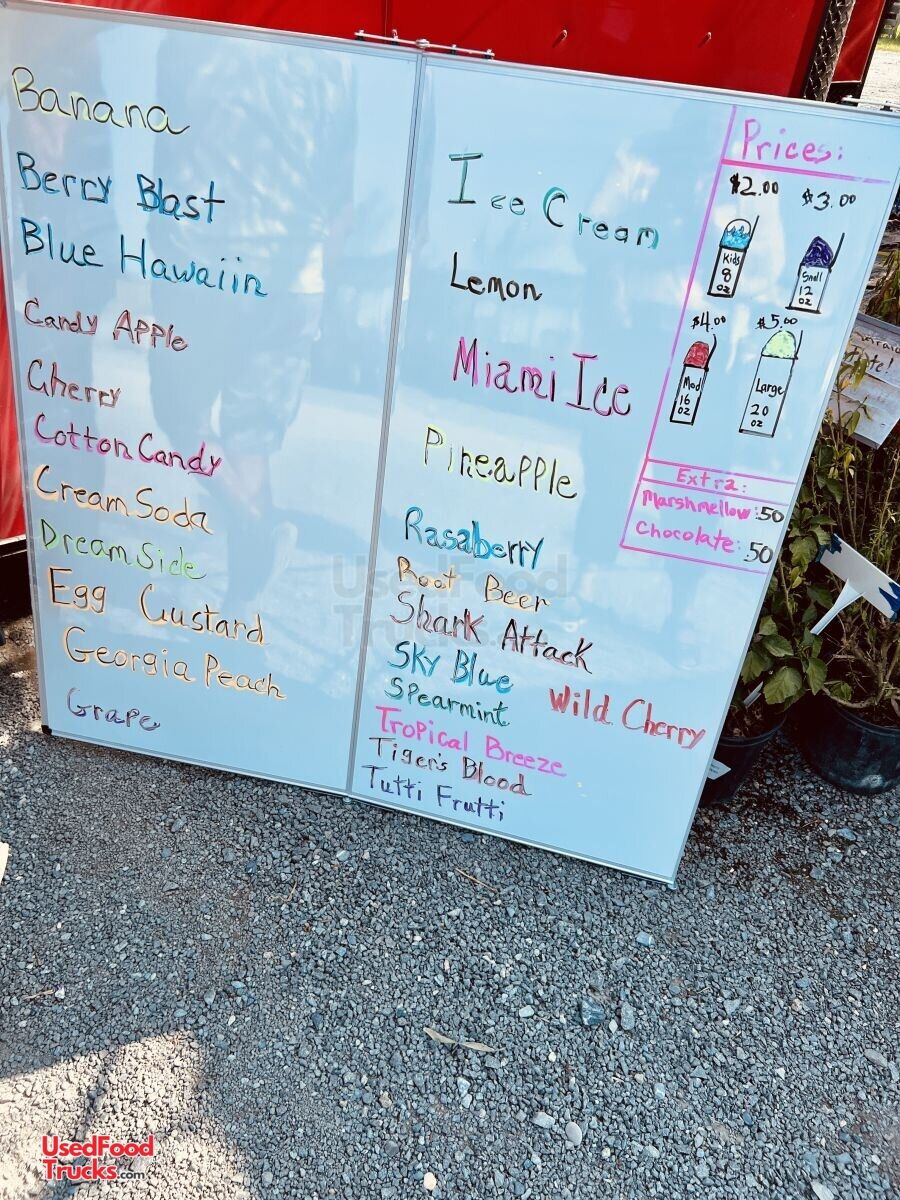 Banana
Berry Blast
Blue Hawaiin
Candy Apple
Cherry
Cotton Candy
Cream Soda
Dream Side
Egg Custard
Georgia Peach
Grape
Ice Cream
Lemon
Miami Ice
Pineapple
Rasaberry
Root Beer
Shark Attack
Sky Blue
Spearmint
Wild Cherry
Tropical Breeze
Tiger's Blood
Tutti Frutti
Prices:
$2.00 $3.00
Kids
8
oz
Small
12
oz
$4.00 $5.00
Med
16
oz
Large
20
oz
Extra:
Marshmellow: .50
Chocolate: .50
UsedFood
Trucks.com
UsedFood
Trucks.com